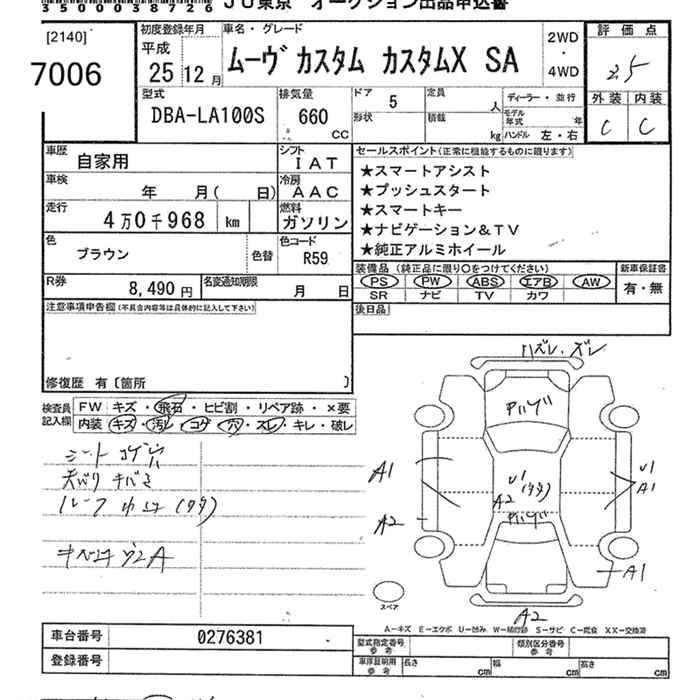 350003872
JU東京 オークション出品申込書
[2140]
7006
初度登録年月
平成
25 12 月
車名・グレード
ムーヴ カスタム カスタムX SA
2WD
・
4WD
評価点
2.5
外装 内装
C C
型式
DBA-LA100S
排気量
660
CC
ドア
5
形状
定員
人
積載
kg
ディーラー・並行
モデル年式
年
ハンドル 左・右
車歴
自家用
シフト
IAT
車検
年 月( 日)
冷房
AAC
走行
4万0千968 km
燃料
ガソリン
色
ブラウン
色替
色コード
R59
R券
8,490 円
名変通知期限
月 日
セールスポイント(正常に機能するものに限ります)
★スマートアシスト
★プッシュスタート
★スマートキー
★ナビゲーション&TV
★純正アルミホイール
装備品(純正品に限り○をつけてください)
PS PW ABS エアB AW
SR ナビ TV カワ
新車保証書
有・無
後日品
注意事項申告欄(不具合内容等は具体的に記入して下さい)
修復歴 有〔箇所 〕
検査員記入欄
FW キズ・飛石・ヒビ割・リペア跡・×要
内装 キズ・汚レ・コゲ・穴・スレ・キレ・破レ
シート コゲ穴
天バリ キバミ
ルーフ
ハズレ、ズレ
A1
A2
U1
A2
U1
A1
A1
A2
スペア
A-キズ E-エクボ U-凹み W-補修跡 S-サビ C-腐食 XX-交換済
車台番号
0276381
登録番号
型式指定番号
参考
類別区分番号
参考
車庫証明用
参考
長さ cm
幅 cm
高さ cm